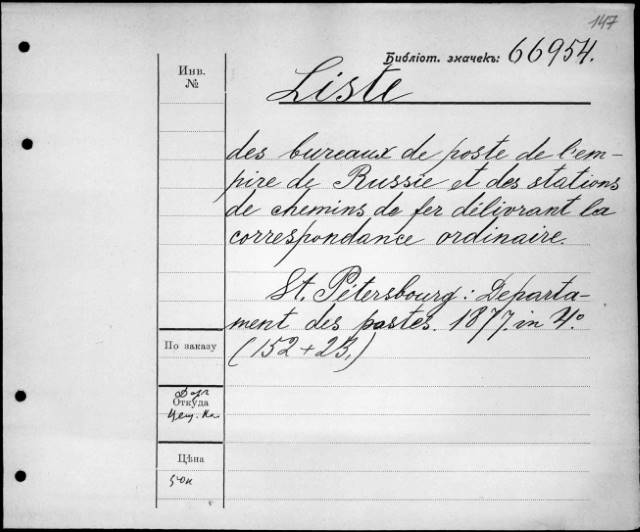 147
Библіот. значекъ: 66954.
Инв.
№
Liste
des bureaux de poste de l'em-
pire de Russie et des stations
de chemins de fer délivrant la
correspondance ordinaire.
St. Pétersbourg: Departa-
ment des postes. 1877. in 4º
(152 + 23.)
По заказу
Откуда
Цѣна
50к